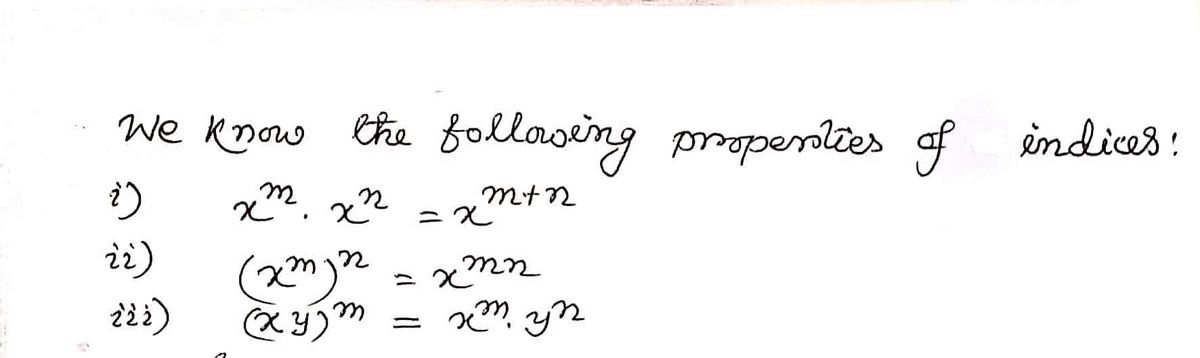 We know the following properties of indices:
i) x^m . x^n = x^{m+n}
ii) (x^m)^n = x^{mn}
iii) (xy)^m = x^m . y^n